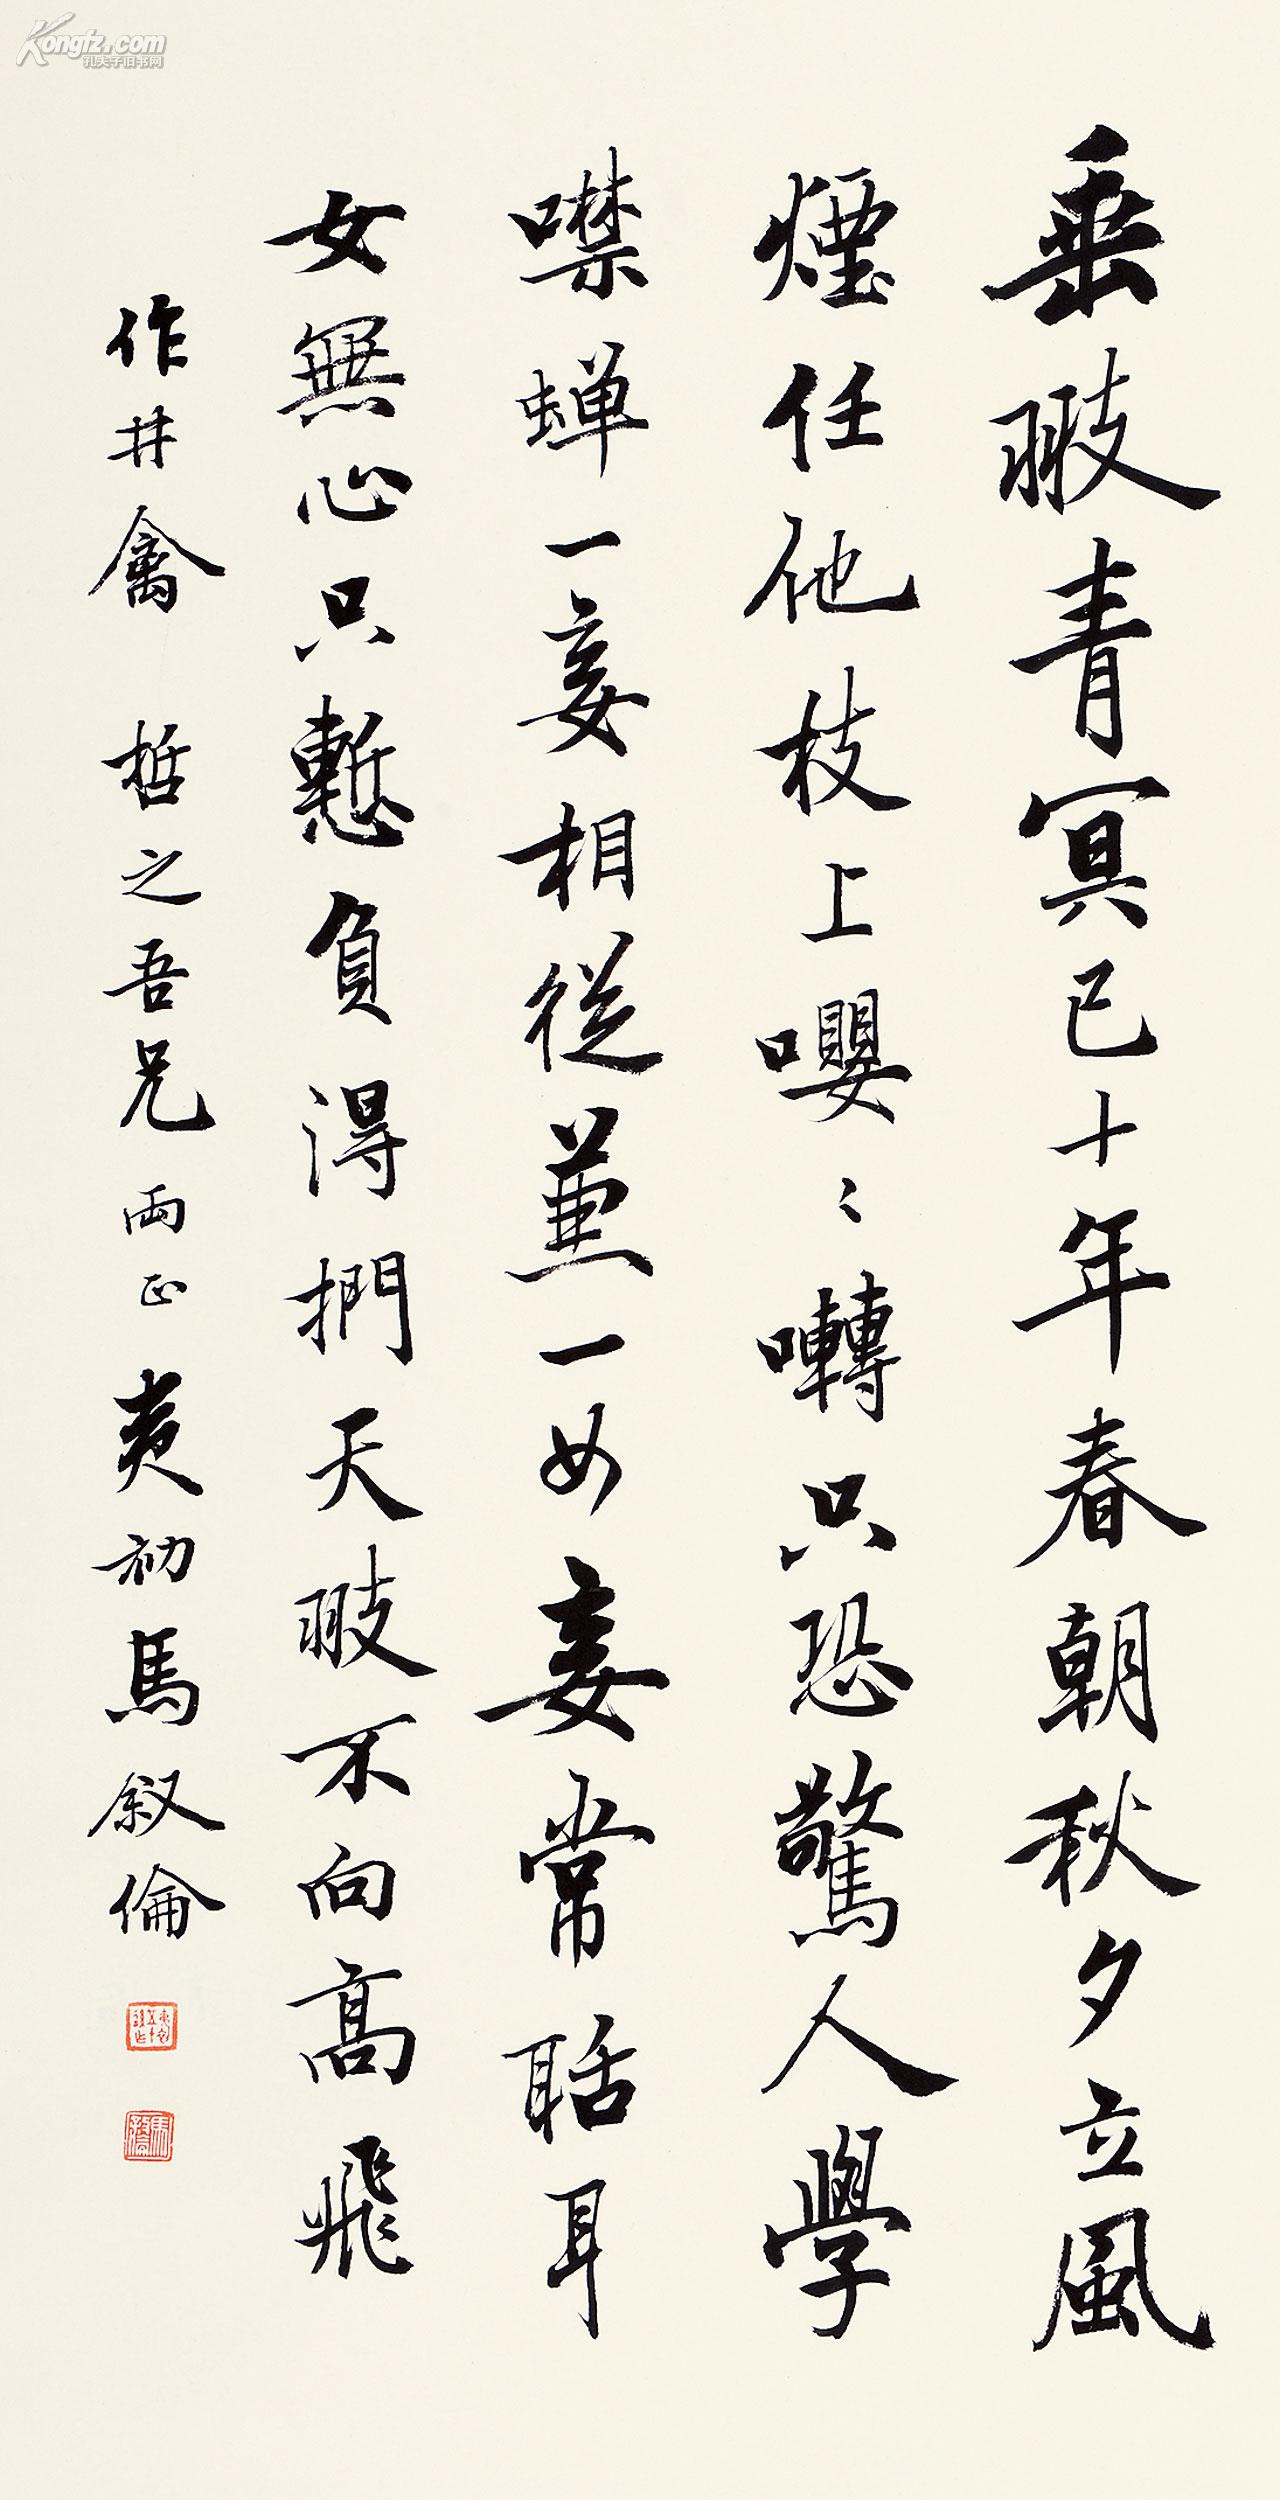 垂翅青冥已十年春朝秋夕立風
煙任他枝上嚶〻囀只恐驚人學
噤蝉一妾相從兼一女妾常聒耳
女無心只慙負得捫天翅不向高飛
作井禽 哲之吾兄 兩正 夷初馬叙倫
Kongfz.com
孔夫子旧书网